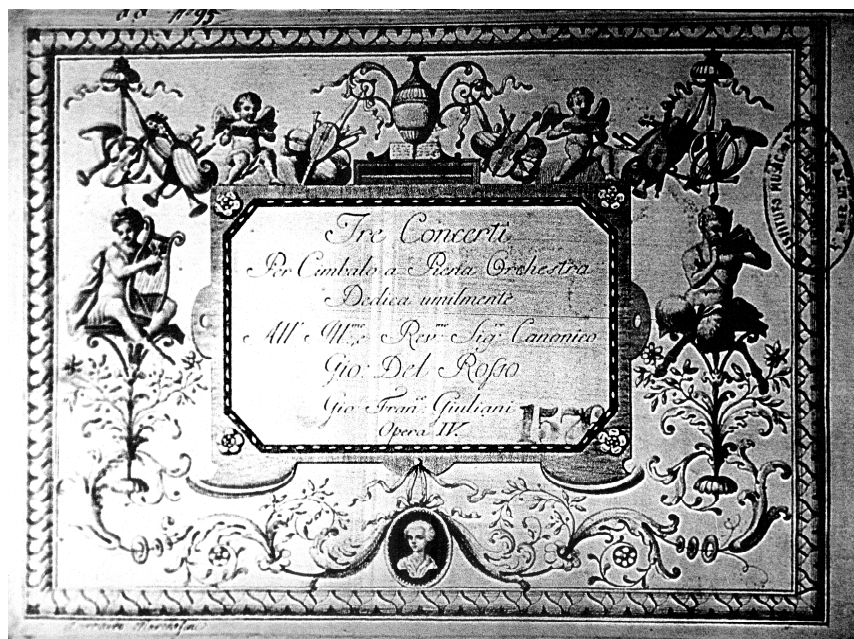 N° 95
Tre Concerti
Per Cimbalo a Piena Orchestra
Dedica umilmente
All' Ill.mo e Rev.mo Sig.r Canonico
Gio: Del Rosso
Gio: Fran.co Giuliani
Opera IV.